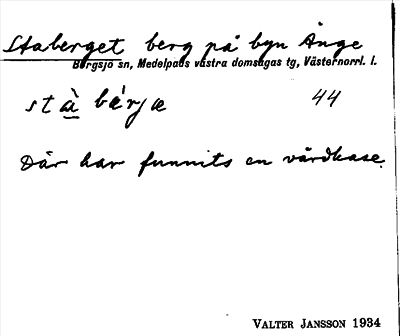 Staberget berg på byn Ånge
Borgsjö sn, Medelpads västra domsagas tg, Västernorrl. l.
stὰ bę́rjæ 44
Där har funnits en vårdkase.
VALTER JANSSON 1934